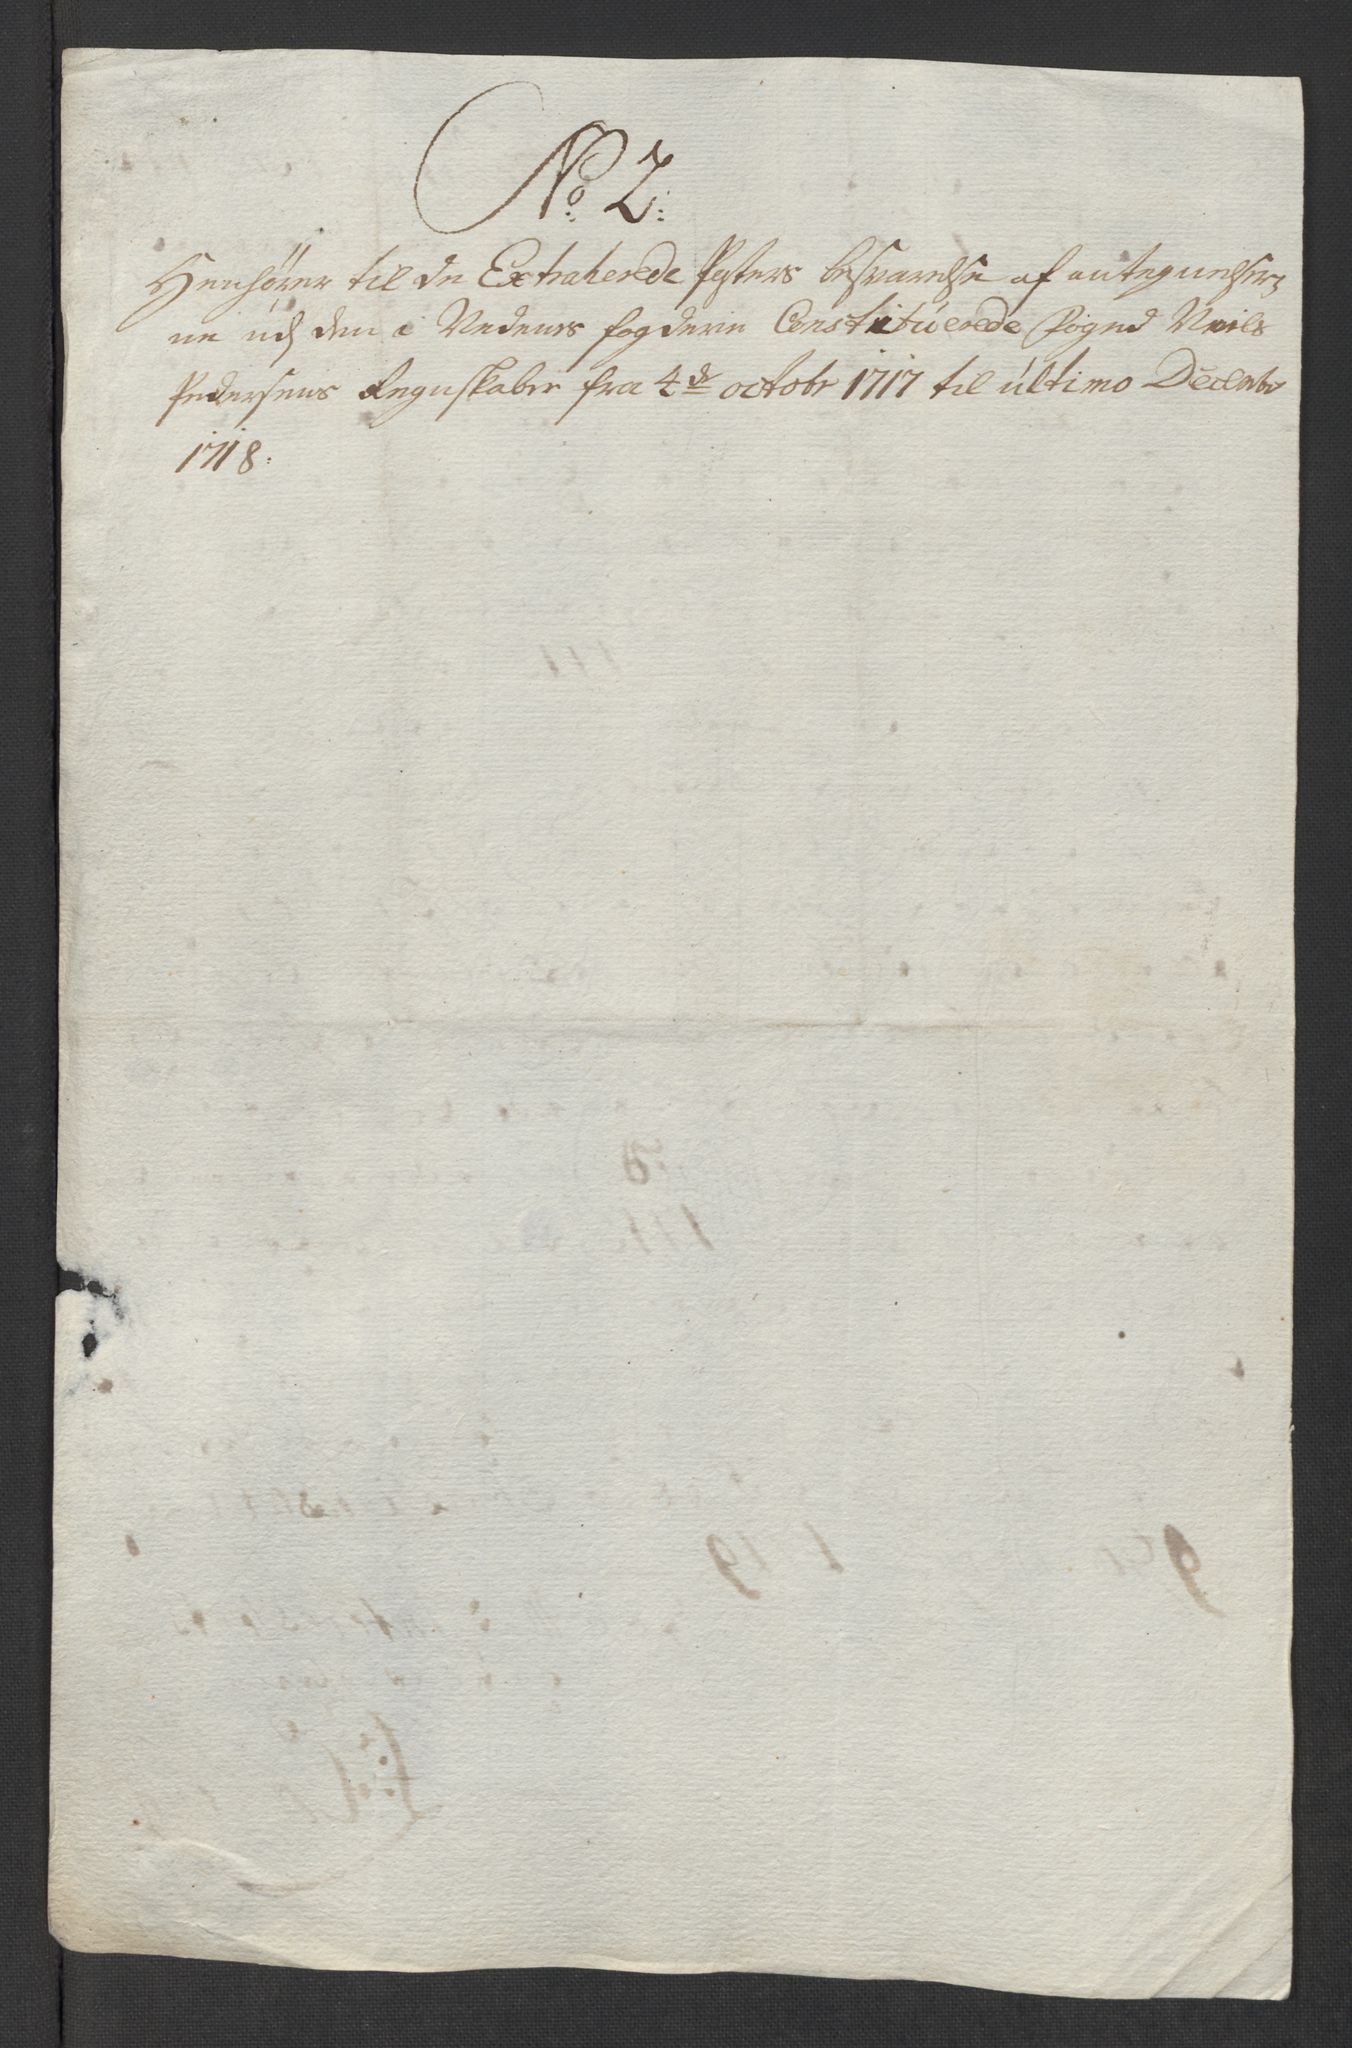 No 2:
Henhører til de Extraherede Posters besvarelse af antegnelser=
ne udj den i Nedenes fogderie Constituerede foged Neils
Pedersens Regnskaber fra 4de octobr 1717 til ultimo Decembr
1718: